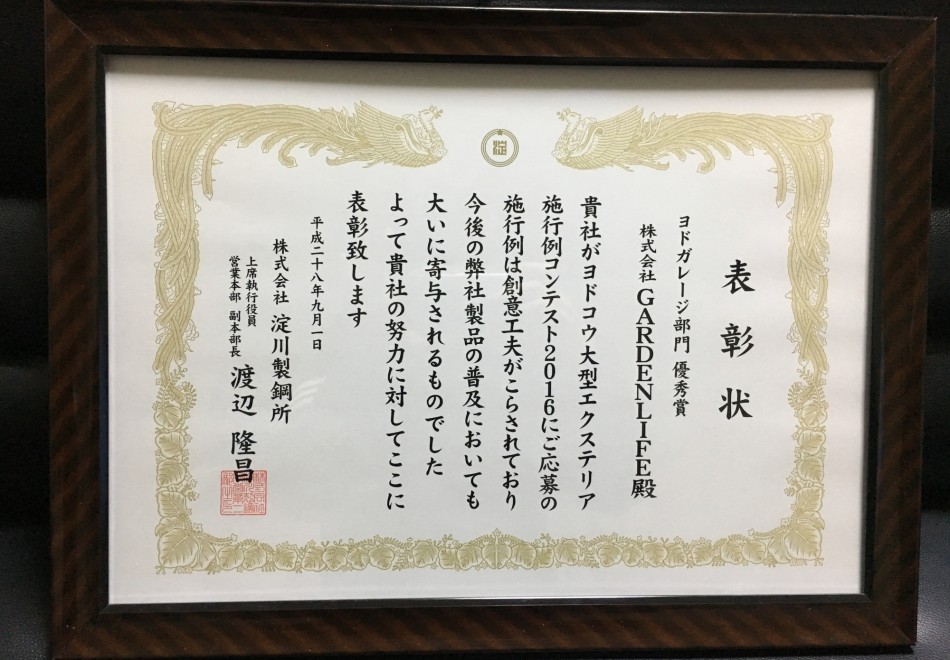 表彰状
ヨドガレージ部門 優秀賞
株式会社 GARDENLIFE殿
貴社がヨドコウ大型エクステリア
施行例コンテスト2016にご応募の
施行例は創意工夫がこらされており
今後の弊社製品の普及においても
大いに寄与されるものでした
よって貴社の努力に対してここに
表彰致します
平成二十八年九月一日
株式会社 淀川製鋼所
上席執行役員
営業本部 副本部長
渡辺 隆昌